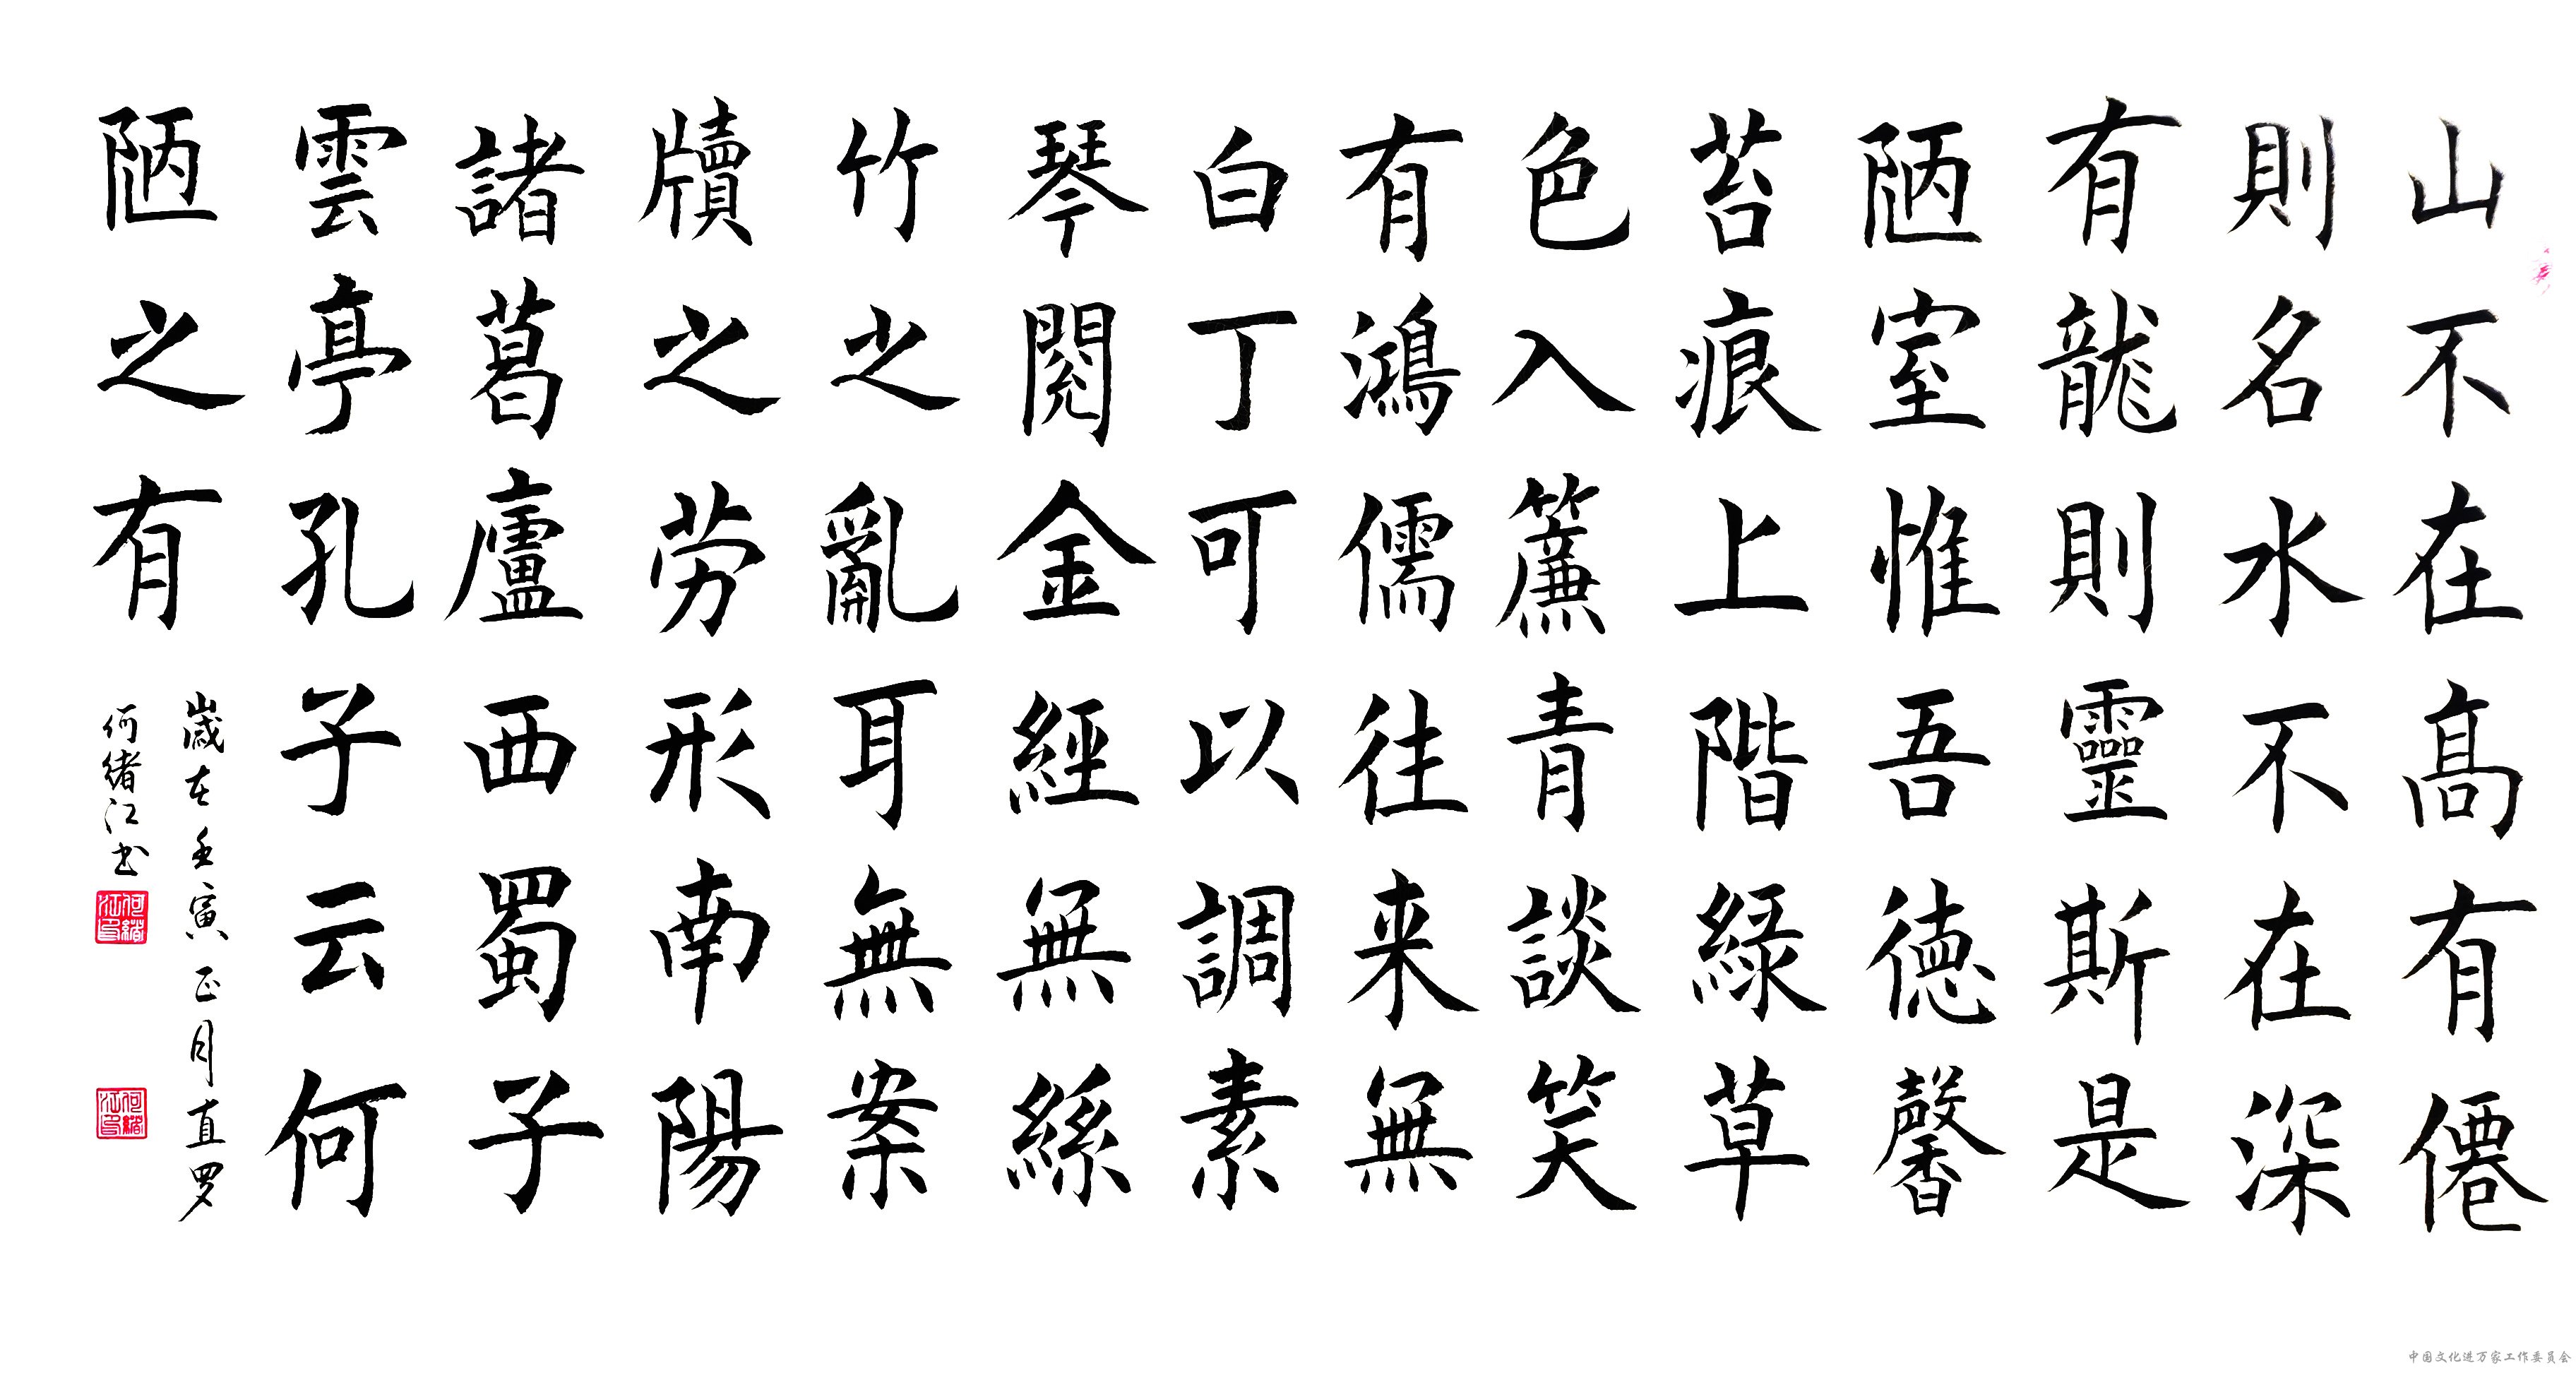 山不在高有僊
則名水不在深
有龍則靈斯是
陋室惟吾德馨
苔痕上階綠草
色入簾青談笑
有鴻儒往来無
白丁可以調素
琴閱金經無絲
竹之亂耳無案
牘之劳形南陽
諸葛廬西蜀子
雲亭孔子云何
陋之有
歲在壬寅正月直罗
何緒江书
何緒江印
何緒江印
中国文化进万家工作委员会